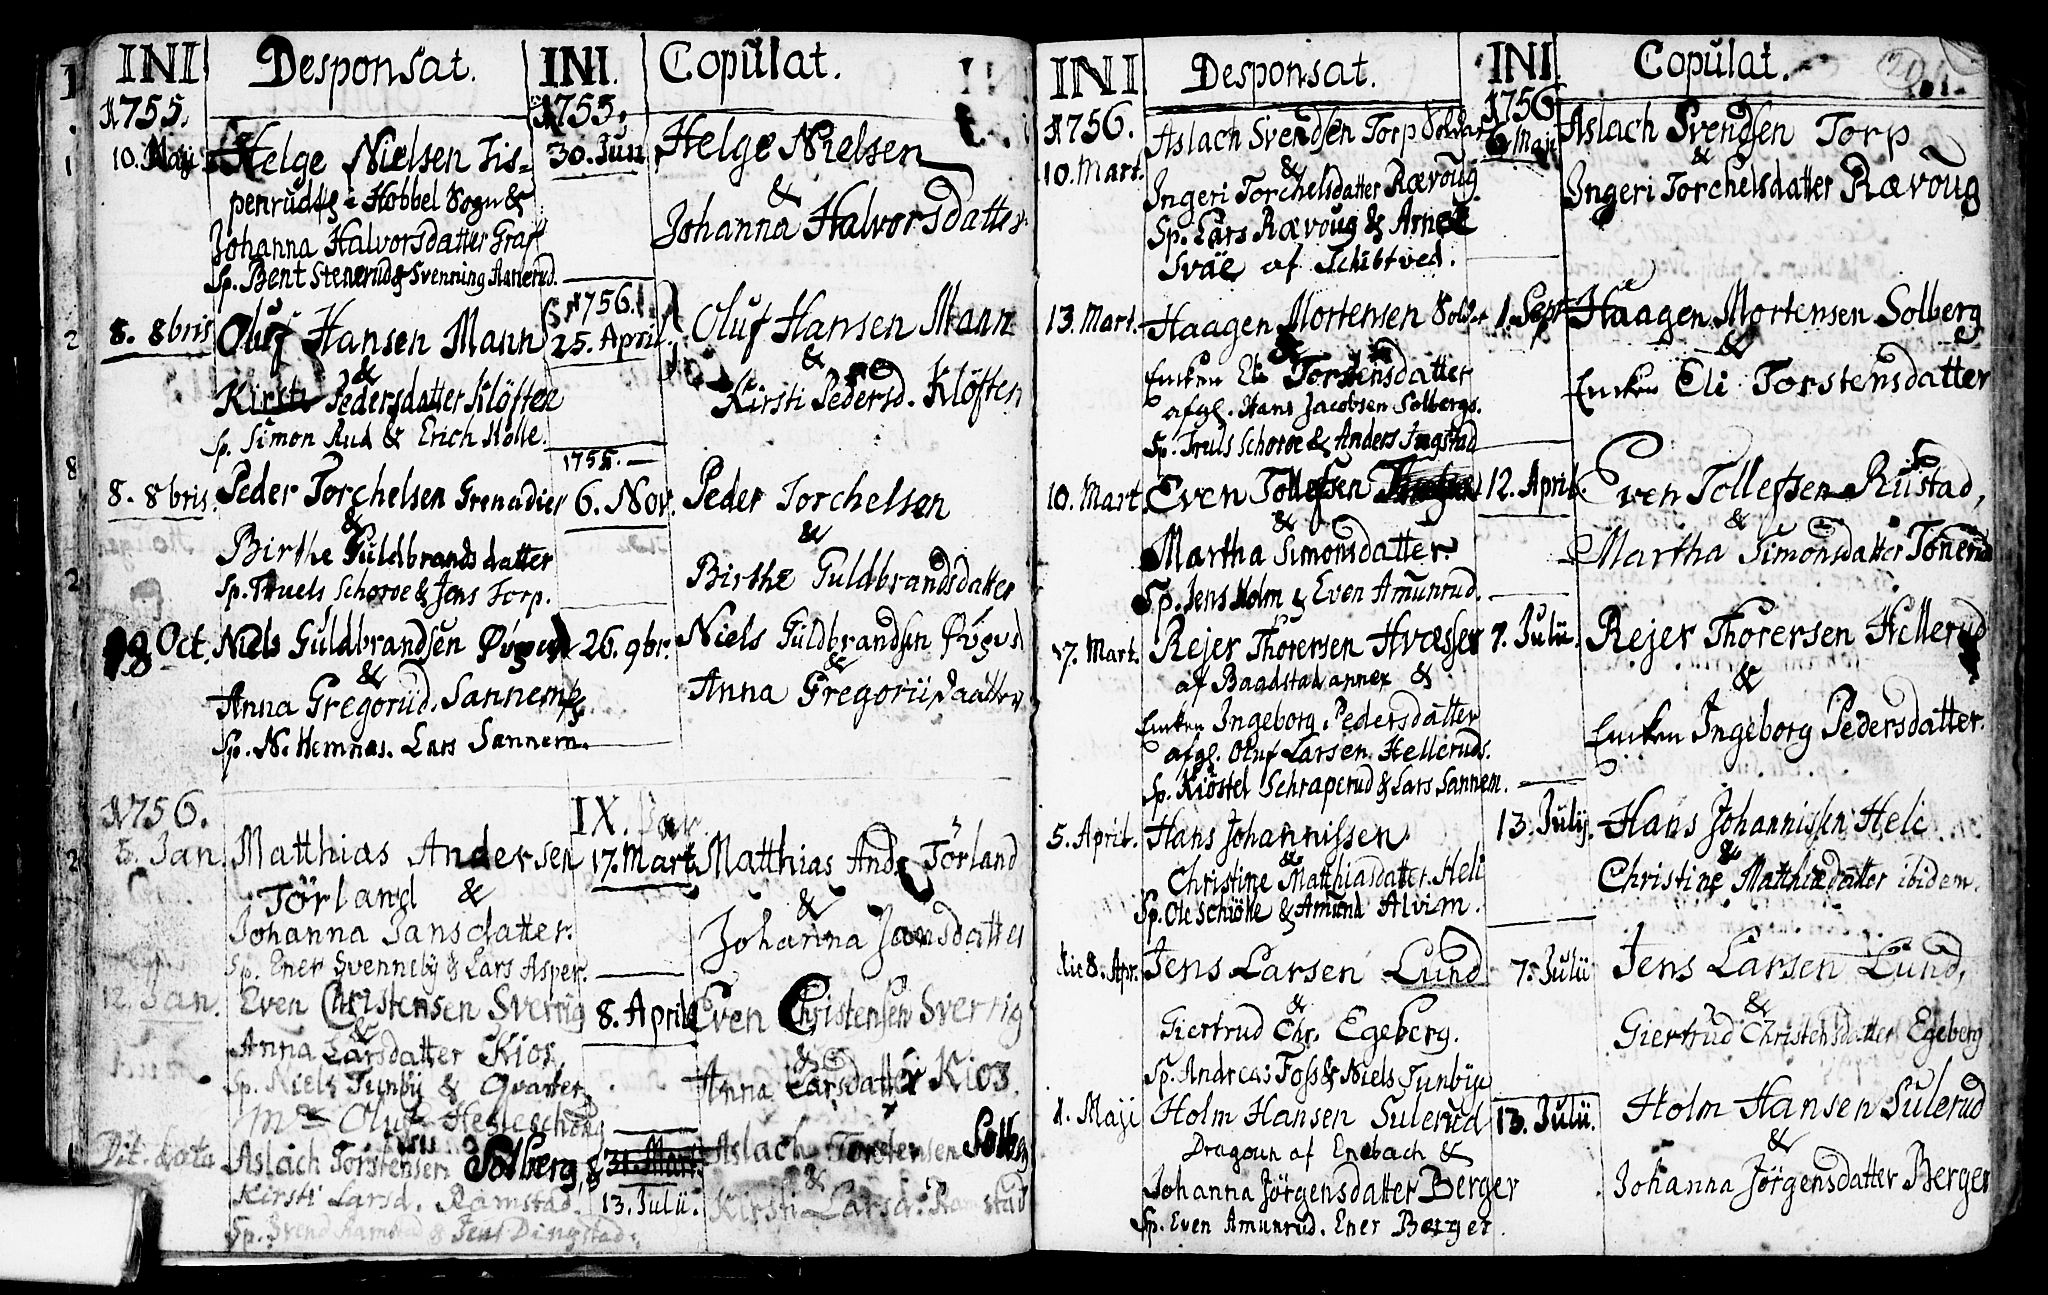 INI Desponsat. INI. Copulat.
1755. 1755.
10. Maji Helge Nielsen Tis- 30. Jun Helge Nielsen
penrud i Hobbel Sogn & &
Johanna Halvorsdatter Graf Johanna Halvorsdatter
Sp. Bent Stenerud & Svenning Hanerud.
1756.
8. 8bris Oluf Hansen Mann 25. April. Oluf Hansen Mann
& &
Kirsti Pedersdatter Klöften Kirsti Pedersd. Klöften
Sp. Simon Rud & Erich Holle.
1755.
8. 8bris. Peder Torchelsen Grenadier 6. Nov. Peder Torchelsen
& &
Birthe Guldbrandsdatter Birthe Guldbrandsdatter
Sp. Truels Schoroe & Jens Torp.
Oct. Niels Guldbrandsen 26. 9br. Niels Guldbrandsen
& &
Anna Gregorud. Sannem Anna Gregorii daatter
Sp. N. Hemnas. Lars Sannem.
1756. IX.
5. Jan Matthias Andersen 17. Mart. Matthias And. Törland
Törland & &
Johanna Jansdatter. Johanna Jansdatter
Sp. Ener Svenneby & Lars Asper.
12. Jan. Even Christensen Svertig 8. April Even Christensen Svertig
& &
Anna Larsdatter Kios Anna Larsdatter Kios.
Sp. Niels Tunby & Qvarter
Mr Oluf
Dit. data Aslach Torstensen Solberg & 31. Mart. Aslach Torstensen Solb
&
Kirsti Larsd. Ramstad. 13. Julii. Kirsti Larsd. Ramstad
Sp. Svend Ramstad & Jens Dingstad.
INI Desponsat. INI Copulat. 201.
1756. 1756
10. Mart. Aslach Svendsen Torp Soldat Maji Aslach Svendsen Torp
& &
Ingeri Torchelsdatter Rævoug Ingeri Torchelsdatter Rævoug
Sp. Lars Rævoug & Arne
Sväe af Schibtved.
13. Mart. Haagen Mortensen Soldat 1. Sept. Haagen Mortensen Solberg
& &
Encken Eli Torstensdatter Encken Eli Torstensdatter
afgl. Hans Jacobsen Solbergs.
Sp. Truls Schoroe & Anders Ingstad
10. Mart. Even Tollefsen 12. April. Even Tollefsen Rustad,
& &
Martha Simonsdatter. Martha Simonsdatter Tonerud
Sp. Jens Holm & Even Amunrud.
17. Mart. Rejer Thorersen Hvasser 7. Julii. Rejer Thorersen Hellerud
af Baadstad annex & &
Encken Ingeborg Pedersdatter Encken Ingeborg Pedersdatter.
afgl. Oluf Larsen Helleruds.
Sp. Kiöstel Schraperud & Lars Sannem.
5. April. Hans Johannissen 13. Julij. Hans Johannissen Heli
& &
Christine Matthiasdatter Heli Christine Matthiædatter ibidem.
Sp. Ole Schiölle & Amund Alvim.
8. Apr. Jens Larsen Lund 7. Julii Jens Larsen Lund,
& &
Giertrud Chr. Egeberg. Giertrud Christensdatter Egeberg
Sp. Andreas Foss & Niels Tunby
1. Maji Holm Hansen Sulerud 13. Julii. Holm Hansen Sulerud
Dragoun af Enebach & &
Johanna Jörgensdatter Berger Johanna Jörgensdatter Berger
Sp. Even Amunrud. Ener Berger.